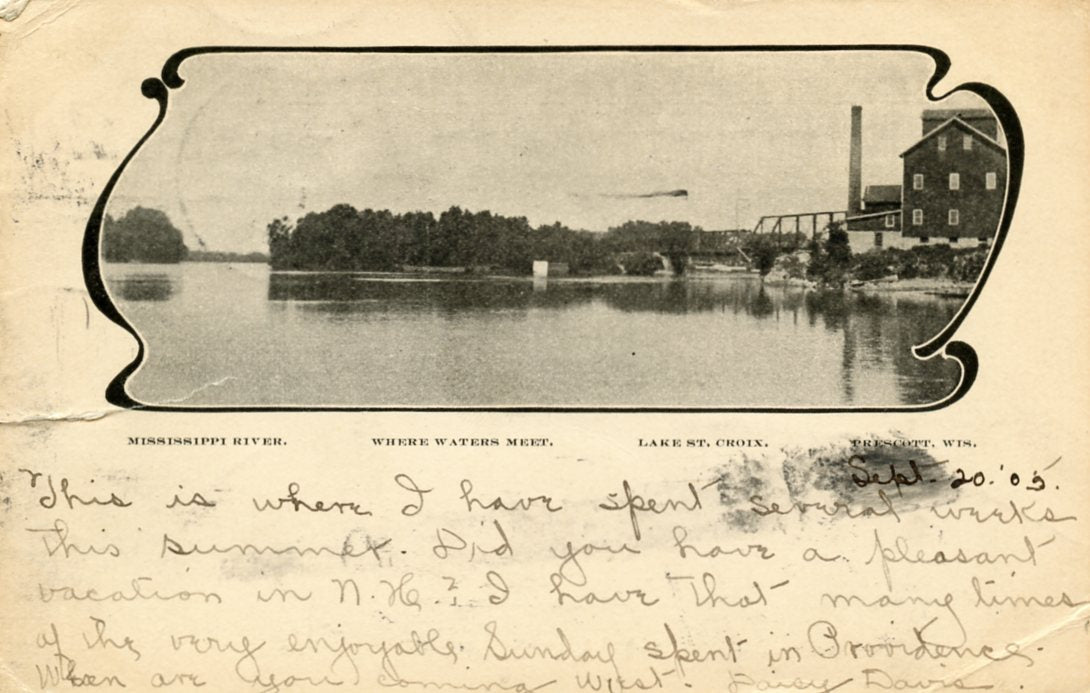 MISSISSIPPI RIVER. WHERE WATERS MEET. LAKE ST. CROIX. PRESCOTT, WIS.
Sept. 20. '05.
This is where I have spent several weeks
this summer. Did you have a pleasant
vacation in N.H.? I have that many times
of the very enjoyable Sunday spent in Providence.
When are you coming West. Daisy Davis.